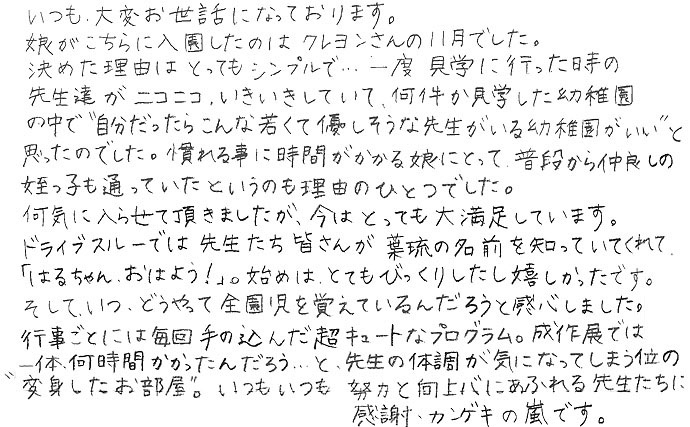 いつも、大変お世話になっております。
娘がこちらに入園したのは クレヨンさんの11月でした。
決めた理由は とってもシンプルで… 一度 見学に行った時の
先生達 が ニコニコ、いきいきしていて、何件か見学した幼稚園
の中で"自分だったら こんな若くて優しそうな先生がいる幼稚園がいい"と
思ったのでした。慣れる事に時間がかかる娘にとって、普段から仲良しの
姪っ子も通っていたというのも理由のひとつでした。
何気に入らせて頂きましたが、今は とっても 大満足しています。
ドライブスルーでは 先生たち 皆さんが 葉琉の名前を知っていてくれて、
「はるちゃん、おはよう!」。始めは、とてもびっくりしたし嬉しかったです。
そして、いつ、どうやって 全園児を覚えているんだろうと感心しました。
行事ごとには毎回 手の込んだ超キュートなプログラム。成作展では
一体、何時間かかったんだろう…と、先生の体調が気になってしまう位の
"変身したお部屋"。いつもいつも 努力と向上心にあふれる先生たちに
感謝、カンゲキの嵐です。